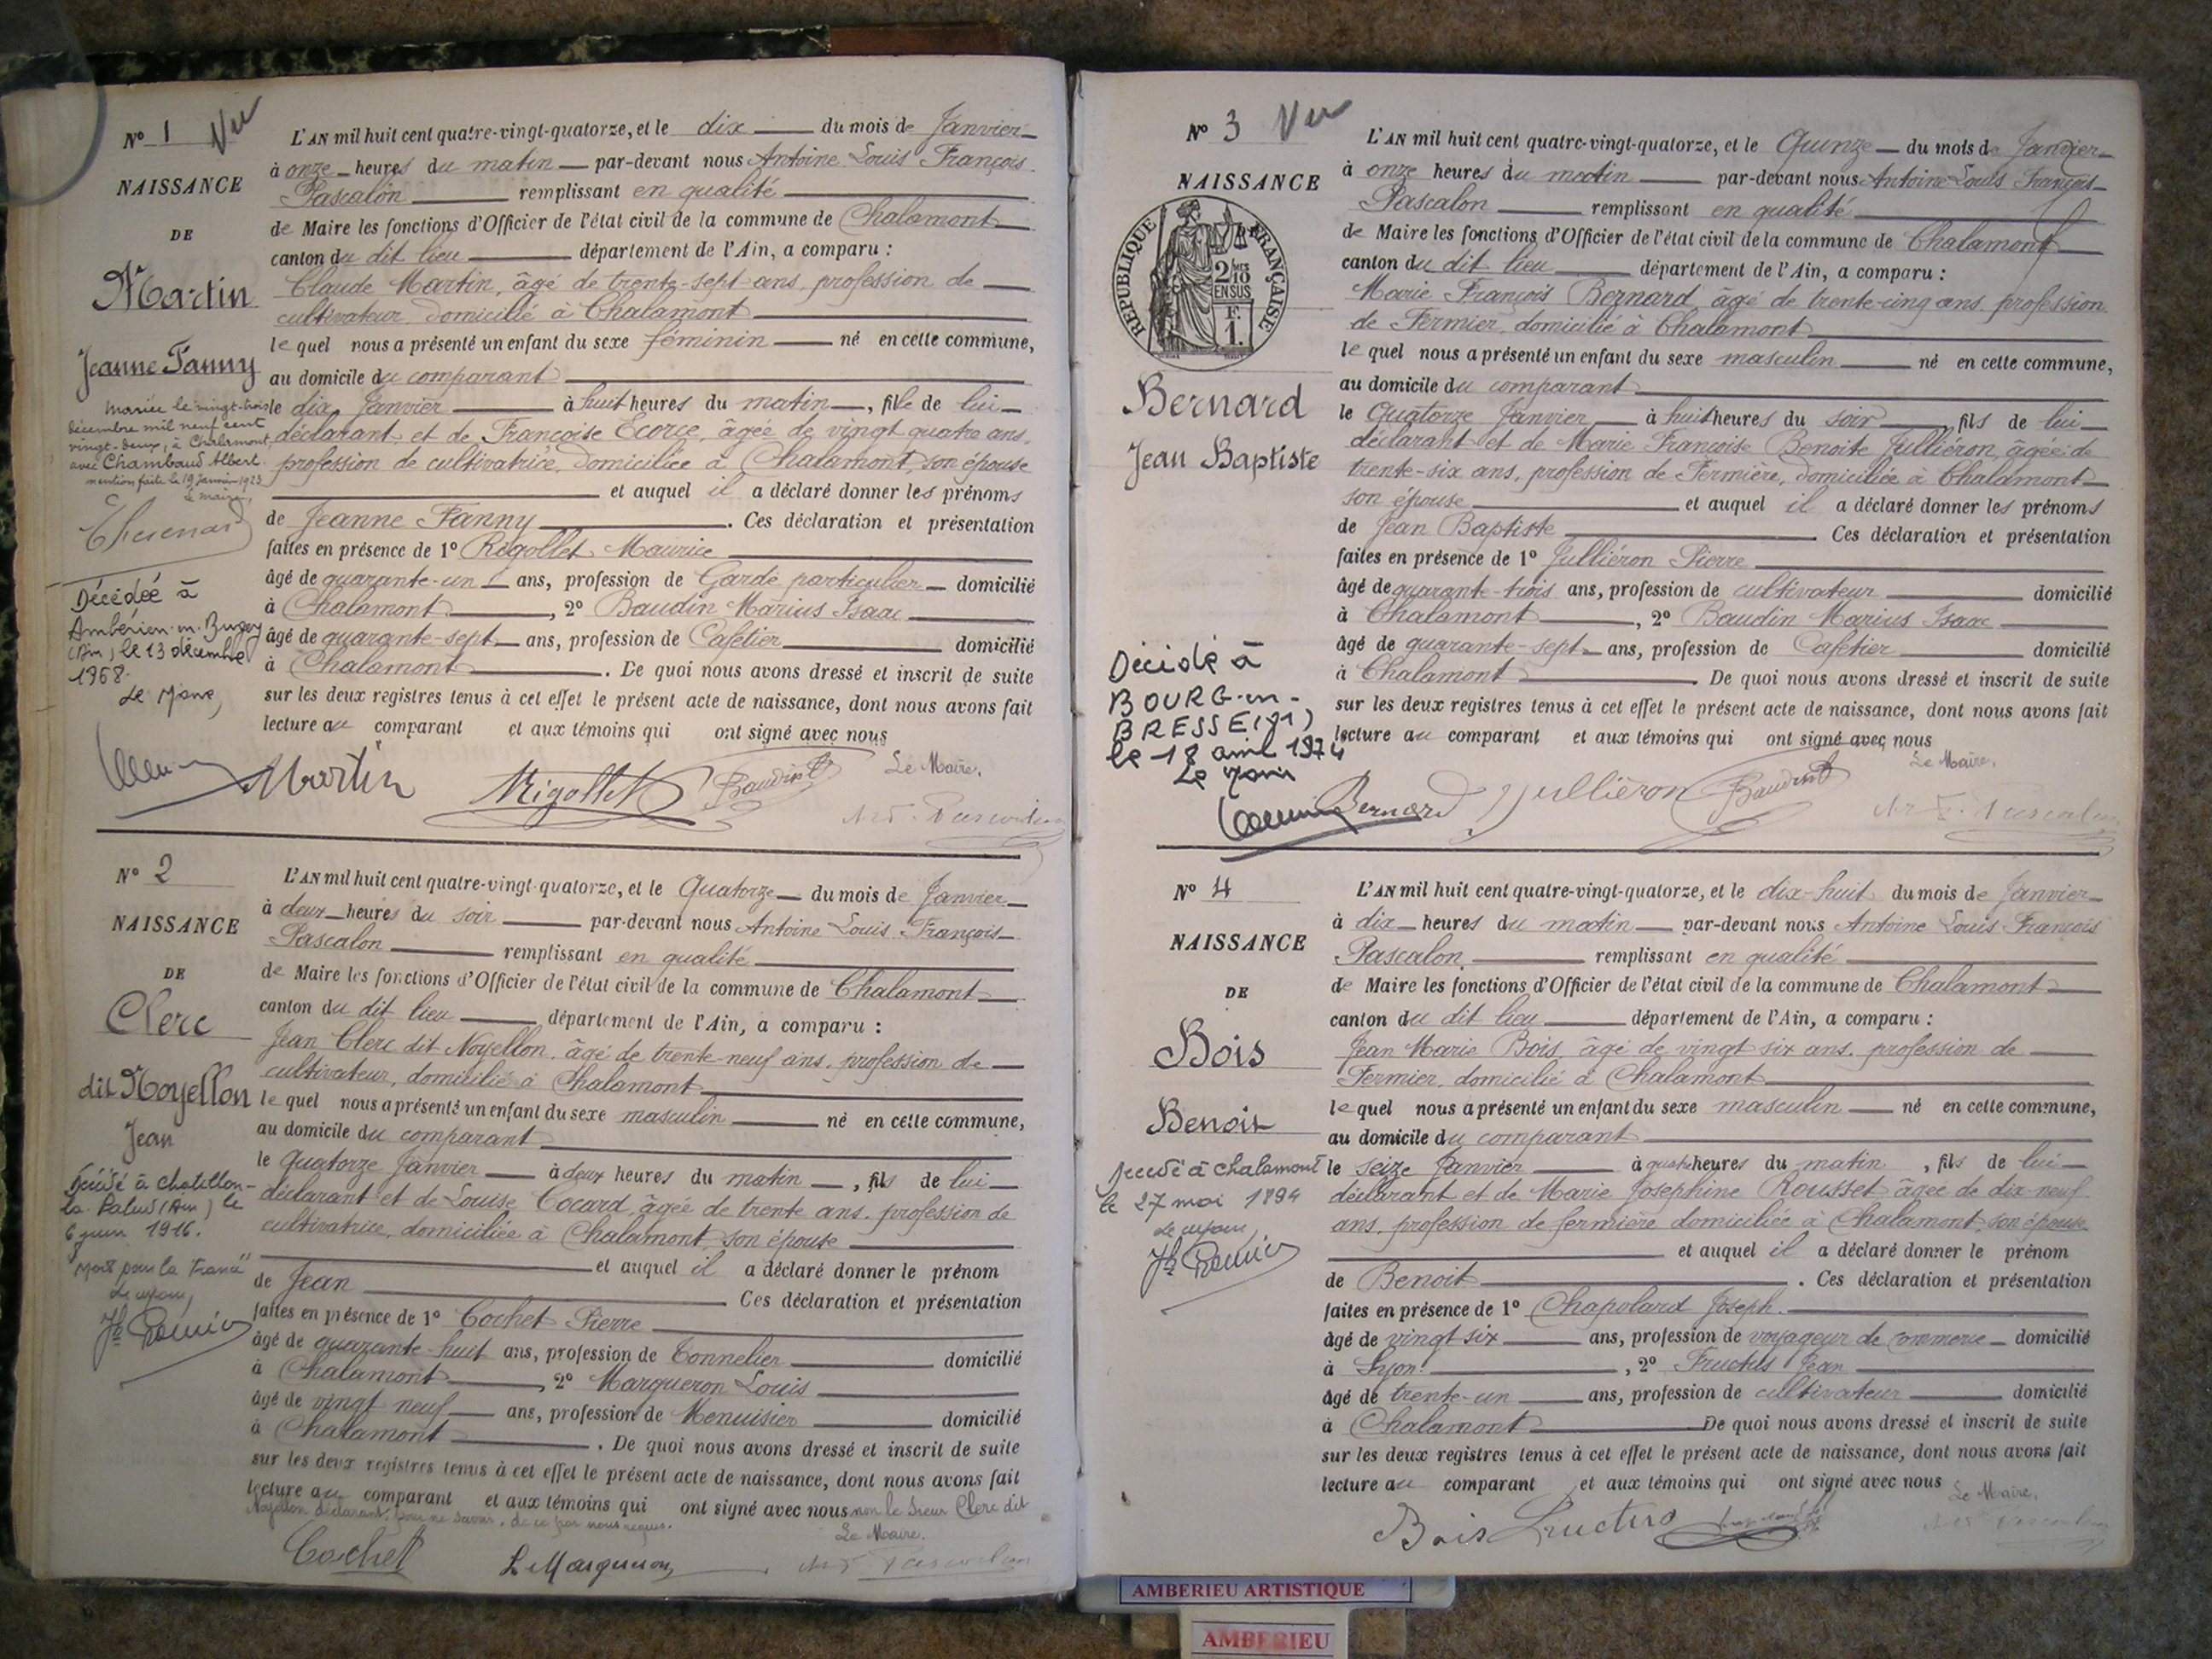 N° 1 Vu
NAISSANCE
DE
Martin
Jeanne Fanny
Mariée le vingt-trois
décembre mil neuf cent
vingt-deux, à Chalamont
avec Chambaud Albert
mention faite le 19 Janvier 1923
Le maire,
Décédée à
Ambérieu-en-Bugey
(Ain) le 13 décembre
1968.
Le Maire,
L'AN mil huit cent quatre-vingt-quatorze, et le dix du mois de Janvier
à onze heures du matin par-devant nous Antoine Louis François
Pascalon remplissant en qualité
de Maire les fonctions d'Officier de l'état civil de la commune de Chalamont
canton du dit lieu département de l'Ain, a comparu :
Claude Martin, âgé de trente-sept ans, profession de
cultivateur domicilié à Chalamont
lequel nous a présenté un enfant du sexe féminin né en cette commune,
au domicile du comparant
le dix Janvier à huit heures du matin, fille de lui
déclarant et de Françoise Ecorce, âgée de vingt quatre ans,
profession de cultivatrice, domiciliée à Chalamont, son épouse
et auquel il a déclaré donner les prénoms
de Jeanne Fanny. Ces déclaration et présentation
faites en présence de 1° Rigollet Maurice
âgé de quarante-un ans, profession de Garde particulier domicilié
à Chalamont, 2° Baudin Marius Isaac
âgé de quarante-sept ans, profession de Cafetier domicilié
à Chalamont. De quoi nous avons dressé et inscrit de suite
sur les deux registres tenus à cet effet le présent acte de naissance, dont nous avons fait
lecture au comparant et aux témoins qui ont signé avec nous
Le Maire.
Martin Rigollet Baudin
N° 2
NAISSANCE
DE
Clerc
dit Noyellon
Jean
Décédé à Chatillon-
la-Palud (Ain) le
6 juin 1916.
"Mort pour la France"
Le Maire,
L'AN mil huit cent quatre-vingt-quatorze, et le Quatorze du mois de Janvier
à deux heures du soir par-devant nous Antoine Louis François
Pascalon remplissant en qualité
de Maire les fonctions d'Officier de l'état civil de la commune de Chalamont
canton du dit lieu département de l'Ain, a comparu :
Jean Clerc dit Noyellon, âgé de trente-neuf ans, profession de
cultivateur, domicilié à Chalamont
lequel nous a présenté un enfant du sexe masculin né en cette commune,
au domicile du comparant
le Quatorze Janvier à deux heures du matin, fils de lui
déclarant et de Louise Cocard, âgée de trente ans, profession de
cultivatrice, domiciliée à Chalamont, son épouse
et auquel il a déclaré donner le prénom
de Jean Ces déclaration et présentation
faites en présence de 1° Cochet Pierre
âgé de quarante-huit ans, profession de Tonnelier domicilié
à Chalamont, 2° Margueron Louis
âgé de vingt neuf ans, profession de Menuisier domicilié
à Chalamont. De quoi nous avons dressé et inscrit de suite
sur les deux registres tenus à cet effet le présent acte de naissance, dont nous avons fait
lecture au comparant et aux témoins qui ont signé avec nous non le sieur Clerc dit
Noyellon déclarant, pour ne savoir, de ce par nous requis.
Le Maire.
Cochet L Margueron
N° 3 Vu
NAISSANCE
RÉPUBLIQUE FRANÇAISE
2/10
EN SUS
F.
1.
Bernard
Jean Baptiste
Décédé à
BOURG-en-
BRESSE (01)
le 18 avril 1974
Le Maire
L'AN mil huit cent quatre-vingt-quatorze, et le Quinze du mois de Janvier
à onze heures du matin par-devant nous Antoine Louis François
Pascalon remplissant en qualité
de Maire les fonctions d'Officier de l'état civil de la commune de Chalamont
canton du dit lieu département de l'Ain, a comparu :
Marie François Bernard, âgé de trente-cinq ans, profession
de Fermier, domicilié à Chalamont
lequel nous a présenté un enfant du sexe masculin né en cette commune,
au domicile du comparant
le Quatorze Janvier à huit heures du soir fils de lui
déclarant et de Marie Françoise Benoite Julliéron, âgée de
trente-six ans, profession de Fermière, domiciliée à Chalamont
son épouse et auquel il a déclaré donner les prénoms
de Jean Baptiste Ces déclaration et présentation
faites en présence de 1° Julliéron Pierre
âgé de quarante-trois ans, profession de cultivateur domicilié
à Chalamont, 2° Baudin Marius Isaac
âgé de quarante-sept ans, profession de Cafetier domicilié
à Chalamont. De quoi nous avons dressé et inscrit de suite
sur les deux registres tenus à cet effet le présent acte de naissance, dont nous avons fait
lecture au comparant et aux témoins qui ont signé avec nous
Le Maire.
Bernard Julliéron Baudin
N° 4
NAISSANCE
DE
Bois
Benoit
Décédé à Chalamont
le 27 mai 1894
Le Maire,
L'AN mil huit cent quatre-vingt-quatorze, et le dix-huit du mois de Janvier
à dix heures du matin par-devant nous Antoine Louis François
Pascalon remplissant en qualité
de Maire les fonctions d'Officier de l'état civil de la commune de Chalamont
canton du dit lieu département de l'Ain, a comparu :
Jean Marie Bois, âgé de vingt six ans, profession de
Fermier, domicilié à Chalamont
lequel nous a présenté un enfant du sexe masculin né en cette commune,
au domicile du comparant
le seize Janvier à quatre heures du matin, fils de lui
déclarant et de Marie Josephine Rousset âgée de dix-neuf
ans, profession de fermière domiciliée à Chalamont, son épouse
et auquel il a déclaré donner le prénom
de Benoit. Ces déclaration et présentation
faites en présence de 1° Chapolard Joseph.
âgé de vingt six ans, profession de voyageur de commerce domicilié
à Lyon, 2° Fructus Jean
âgé de trente-un ans, profession de cultivateur domicilié
à Chalamont De quoi nous avons dressé et inscrit de suite
sur les deux registres tenus à cet effet le présent acte de naissance, dont nous avons fait
lecture au comparant et aux témoins qui ont signé avec nous
Le Maire.
Bois Fructus
AMBERIEU ARTISTIQUE
AMBERIEU